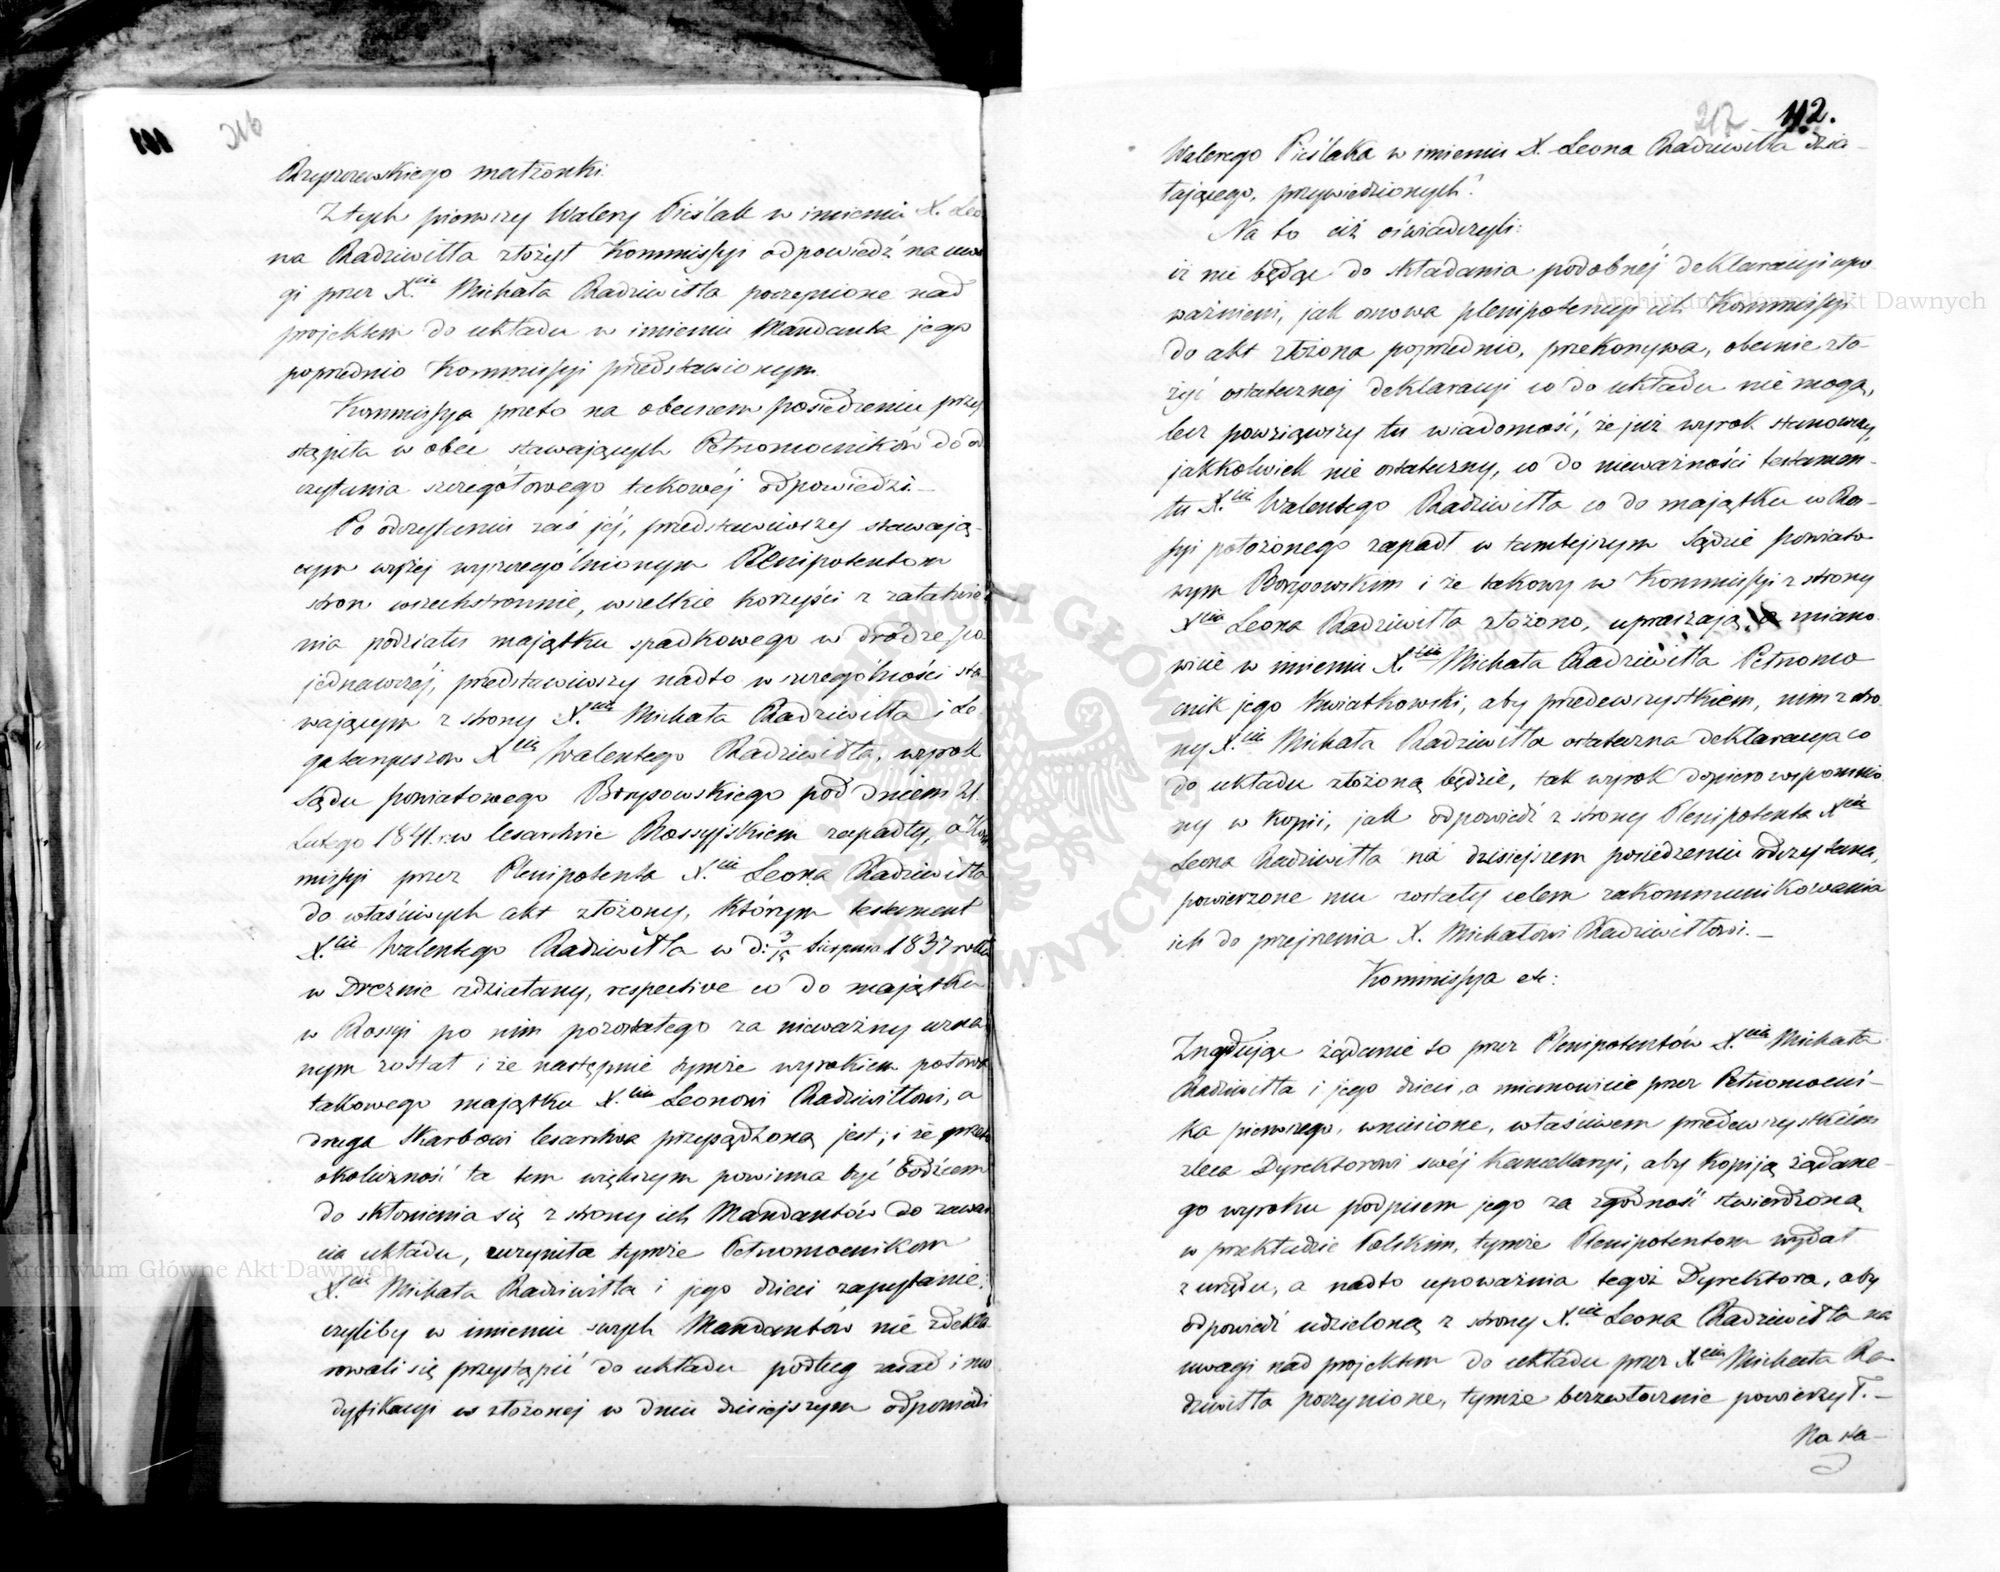 111
216
Rzyszczewskiego małżonki.
Z tych pierwszy Walery Pieślak w imieniu X. Leo
na Radziwiłła złożył Kommissyi odpowiedź na uwa
gi przez X.cia Michała Radziwiłła poczynione nad
projektem do układu w imieniu Mandanta jego
poprzednio Kommissyi przedstawionym.
Kommissya przeto na obecnem posiedzeniu przy
stąpiła w obec stawających Pełnomocników do od
czytania szczegółowego takowéj odpowiedzi.—
Po odczytaniu zaś jéj, przedstawiwszy stawają-
cym wyżej wyszczególnionym Plenipotentom
stron wszechstronnie, wszelkie korzyści z załatwie
nia podziału majątku spadkowego w drodze po
jednawczéj, przedstawiwszy nadto w szczególności sta
wającym z strony X.cia Michała Radziwiłła i Le
gataryuszów X.cia Walentego Radziwiłła, wyrok
Sądu powiatowego Borysowskiego pod dniem 21.
Lutego 1841. r. w Cesarstwie Rossyjskiem zapadły, a Kom
missyi przez Plenipotenta X.cia Leona Radziwiłła
do właściwych akt złożony, którym testament
X.cia Walentego Radziwiłła w d: 3/15 Sierpnia 1837 roku
w Dreznie zdziałany, respective co do majątku
w Rossyi po nim pozostałego za nieważny uzna
nym został i że następnie tymże wyrokiem połowa
takowego majątku X.ciu Leonowi Radziwiłłowi, a
druga Skarbowi Cesarstwa przysądzoną jest; i że przeto
okoliczność ta tem większym powinna być bodźcem
do skłonienia się z strony ich Mandantów do zawar
cia układu, uczyniła tymże Pełnomocnikom
X.cia Michała Radziwiłła i jego dzieci zapytanie,
czyliby w imieniu swych Mandantów nie zdekla
rowali się przystąpić do układu podług zasad i mo
dyfikacyi w złożonej w dniu dzisiejszym odpowiedzi
217
112.
Walerego Pieślaka w imieniu X. Leona Radziwiłła dzia-
łającego, przywiedzionych?
Na to ciż oświadczyli:
iż nie będąc do składania podobnéj deklaracyi upo
ważnieni, jak osnowa plenipotencyi ich Kommissyi
do akt złożona poprzednio, przekonywa, obecnie zło-
żyć ostatecznej deklaracyi co do układu nie mogą,
lecz powziąwszy tu wiadomość, że już wyrok stanowczy,
jakkolwiek nie ostateczny, co do nieważności testamen-
tu X.cia Walentego Radziwiłła co do majątku w Ros-
syi położonego zapadł w tamtejszym Sądzie powiato
wym Borysowskim i że takowy w Kommissyi z strony
X.cia Leona Radziwiłła złożono, upraszają, a miano
wicie w imieniu X.cia Michała Radziwiłła Pełnomo
cnik jego Kwiatkowski, aby przedewszystkiem, nim z stro
ny X.cia Michała Radziwiłła ostateczna deklaracya co
do układu złożoną będzie, tak wyrok dopiero wspomnio
ny w kopii, jak odpowiedź z strony Plenipotenta X.cia
Leona Radziwiłła na dzisiejszem posiedzeniu odczytana,
powierzone mu zostały celem zakommunikowania
ich do przejrzenia X. Michałowi Radziwiłłowi.—
Kommissya etc:
Znajdując żądanie to przez Plenipotentów X.cia Michała
Radziwiłła i jego dzieci, a mianowicie przez Pełnomocni-
ka pierwszego, wniesione, właściwem przedewszystkiém
zleca Dyrektorowi swéj Kancellaryi, aby Kopiją żądane-
go wyroku podpisem jego za zgodność stwierdzoną,
w przekładzie Polskim, tymże Plenipotentom wydał
z urzędu, a nadto upoważnia tegoż Dyrektora, aby
odpowiedź udzieloną z strony X.cia Leona Radziwiłła na
uwagi nad projektem do układu przez X.cia Michała Ra
dziwiłła poczynione, tymże bezzwłocznie powierzył.—
Na sa-
Archiwum Główne Akt Dawnych
Archiwum Główne Akt Dawnych
ARCHIWUM GŁÓWNE AKT DAWNYCH